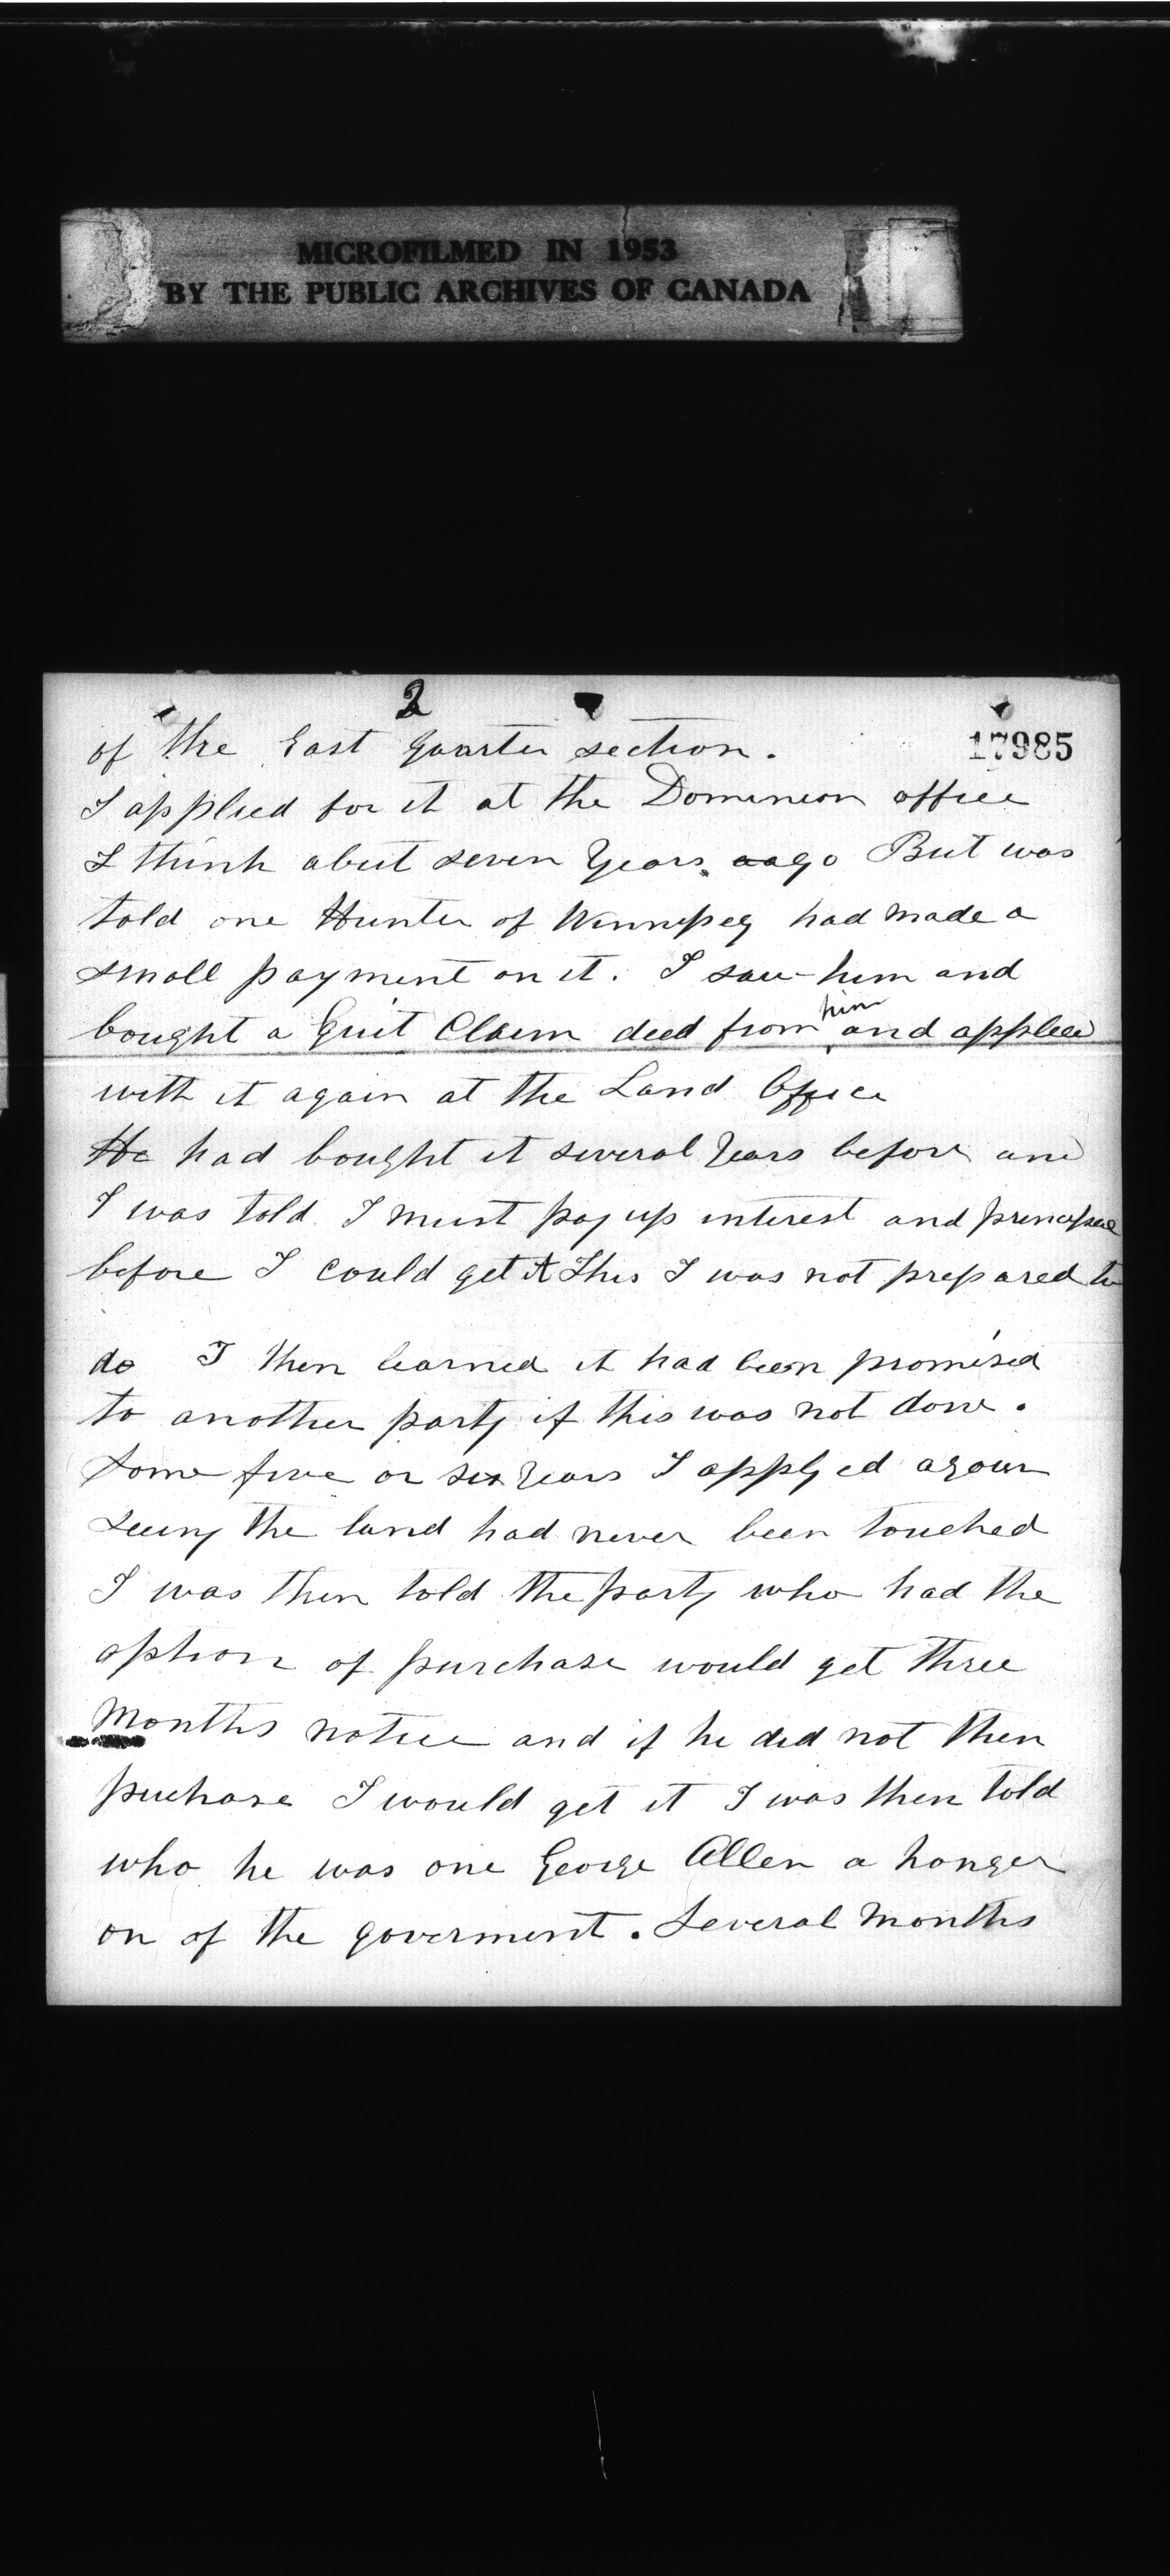 MICROFILMED IN 1953
BY THE PUBLIC ARCHIVES OF CANADA
2
17985
of the East Quarter section.
I applied for it at the Dominion office
I think abut seven Years ago But was
told one Hunter of Winnipeg had made a
small payment on it. I saw him and
bought a Quit Claim deed from him and applied
with it again at the Land Office
He had bought it several Years before and
I was told I must pay up interest and principal
before I could get it This I was not prepared to
do I then learned it had been promised
to another party if this was not done.
Some five or six Years I applyed again
Seeing the land had never been touched
I was then told the party who had the
option of purchase would get three
Months notice and if he did not then
puchase I would get it I was then told
who he was one George Allen a hanger
on of the goverment. Several Months